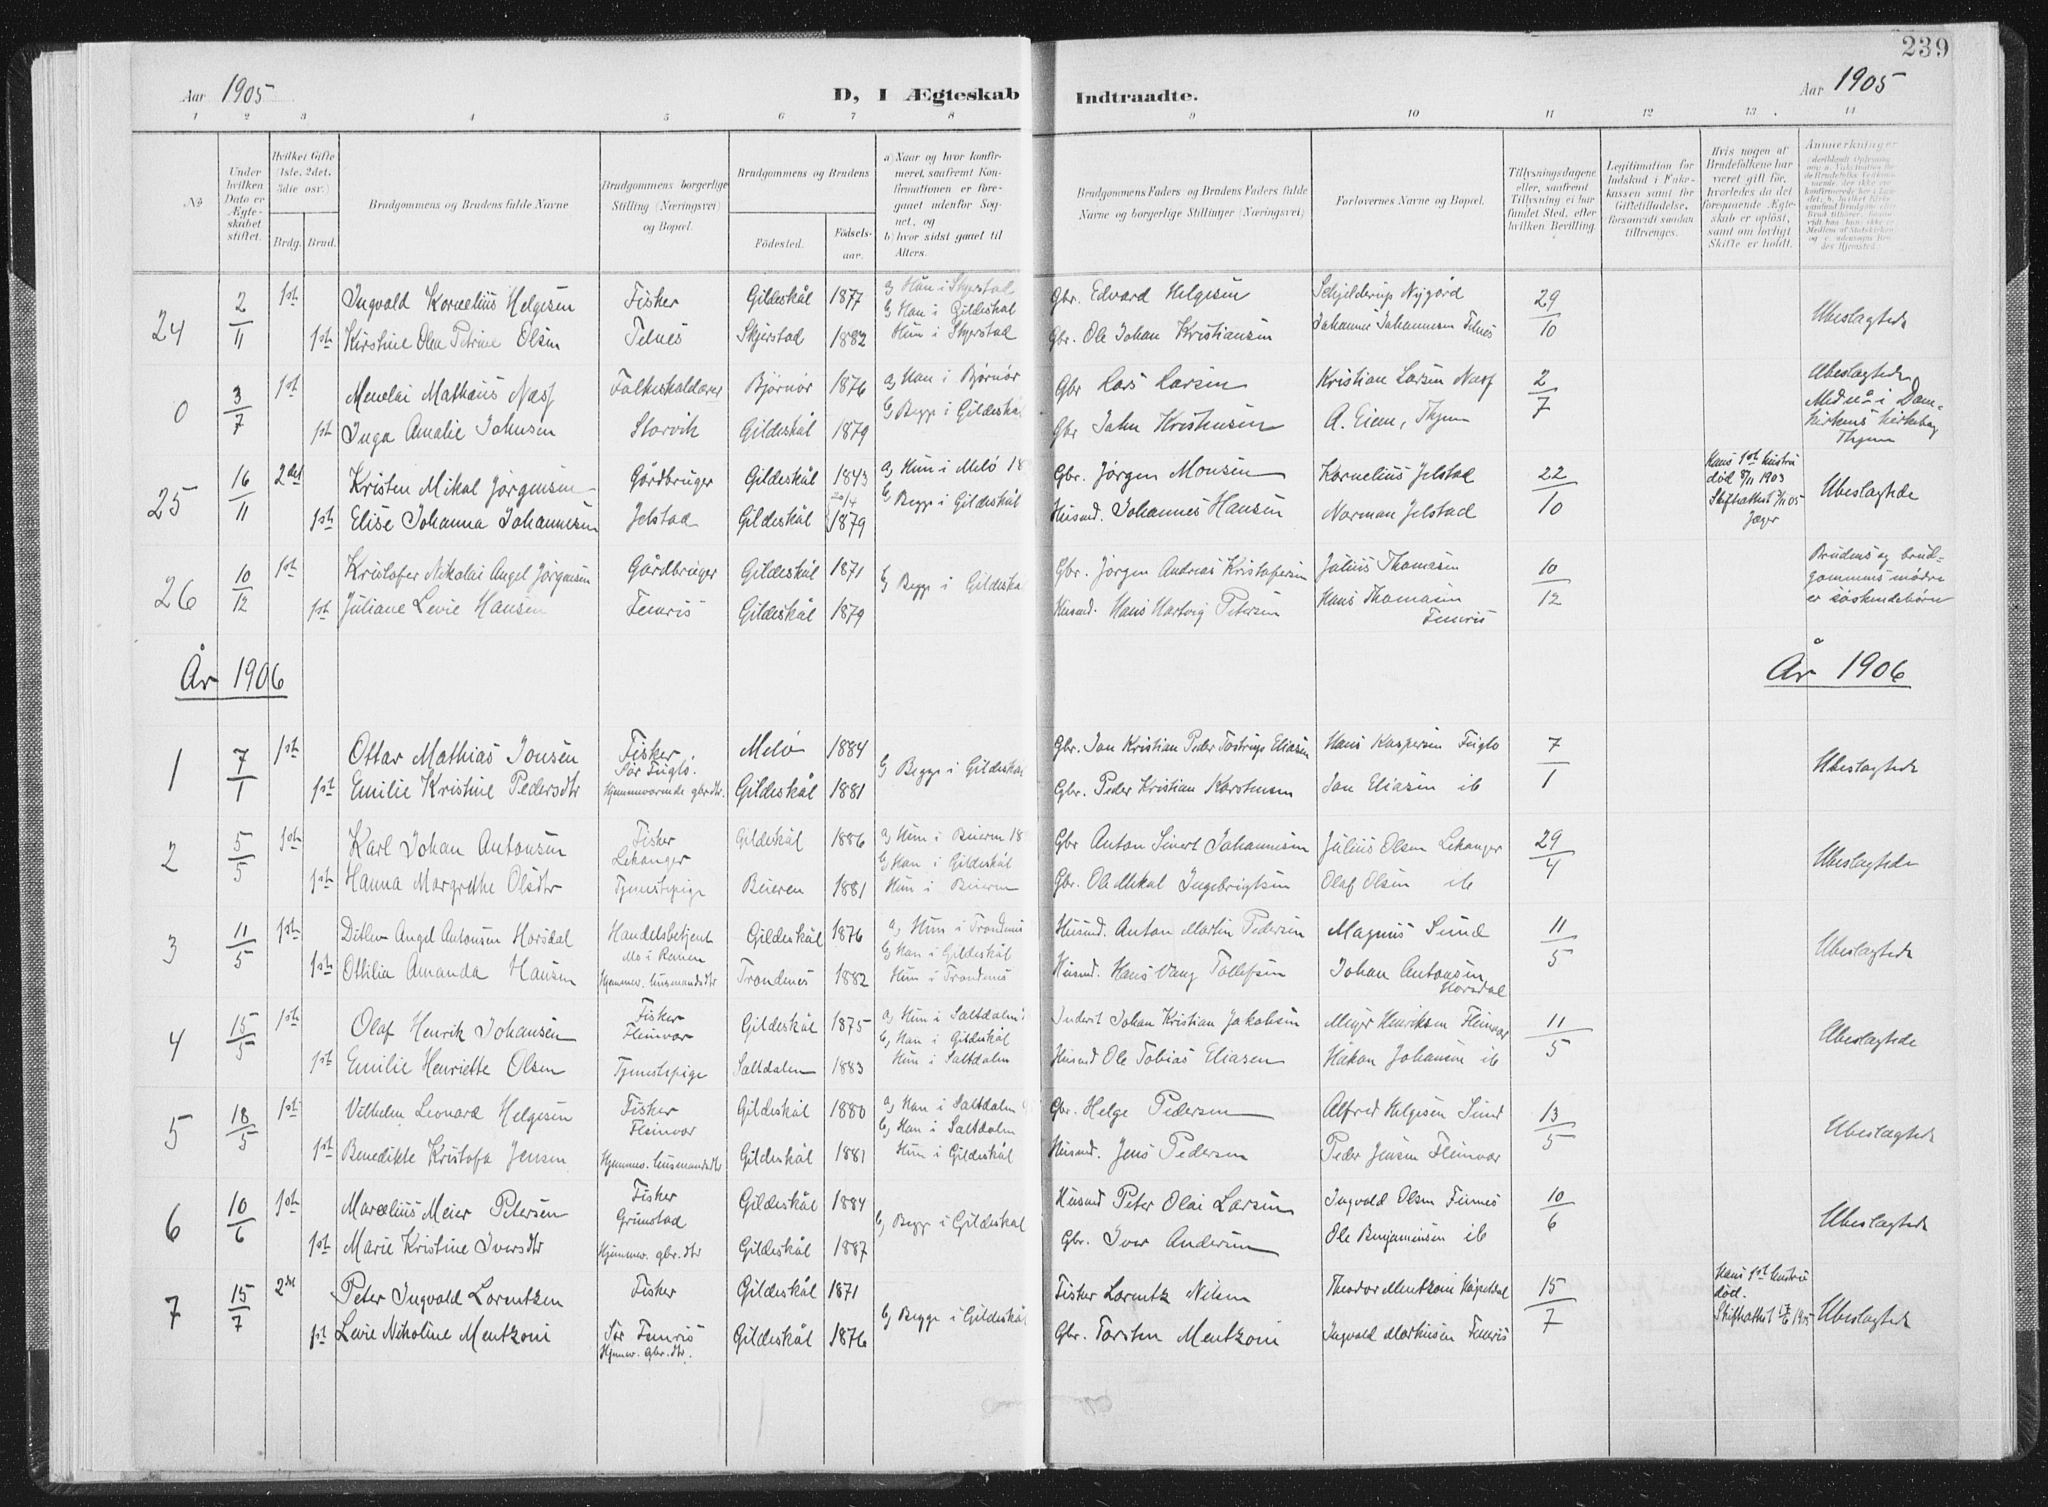 239
Aar 1905 D, I Ægteskab Indtraadte. Aar 1905
1 2 3 4 5 6 7 8 9 10 11 12 13 14
No
Under hvilken Dato er Ægteskabet stiftet.
Hvilket Gifte (1ste, 2det, 3die osv.)
Brdg. Brud.
Brudgommens og Brudens fulde Navne
Brudgommens borgerlige Stilling (Næringsvei) og Bopæl.
Brudgommens og Brudens
Fødested. Fødselsaar.
a) Naar og hvor konfirmeret, saafremt Konfirmationen er foregaaet udenfor Sognet, og
b) hvor sidst gaaet til Alters.
Brudgommens Faders og Brudens Faders fulde Navne og borgerlige Stillinger (Næringsvei)
Forlovernes Navne og Bopæl.
Tillysningsdagene eller, saafremt Tillysning ei har fundet Sted, efter hvilken Bevilling.
Legitimation for Indskud i Enkekassen samt for Giftetilladelse, forsaavidt saadan tiltrænges.
Hvis nogen af Brudefolkene har været gift før, hvorledes da det foregaaende Ægteskab er opløst, samt om lovligt Skifte er holdt.
Anmerkninger
24 2/11 1ste Ingvald Kornelius Helgesen Fisker Gildeskål 1877 a, Hun i Skjerstad Gbr. Edvard Helgesen Schjelderup Nygård 29/10 Ubeslagtede
b, Han i Gildeskål
1ste Kirstine Olea Petrine Olsen Telnes Skjerstad 1882 Hun i Skjerstad Gbr. Ole Johan Kristiansen Johannes Johannesen Telnes
0 3/7 1ste Menelai Mathæus Næss Bjørnør 1876 a, Han i Bjørnør Gbr Lars Larsen Kristian Larsen Næss 2/7 Ubeslagtede
b, Begge i Gildeskål Med no i Domkirkens kirkebog
1ste Inga Amalie Johnsen Storvik Gildeskål 1879 Gbr John Kristensen A. Eien, Thjem Thjem
25 16/11 2det Kristen Mikal Jørgensen Gårdbruger Gildeskål 1843 a, Hun i Melø 18 Gbr. Jørgen Monsen Kornelius Jelstad 22/10 Hans 1ste hustru død 8/11 1903 Skifteattest 7/11 05 Jæger Ubeslagtede
20/4 b, Begge i Gildeskål
1ste Elise Johanna Johannesen Jelstad Gildeskål 1879 Husmd. Johannes Hansen Norman Jelstad
26 10/12 1ste Kristofer Nikolai Angel Jørgensen Gårdbruger Gildeskål 1871 b, Begge i Gildeskål Gbr. Jørgen Andreas Kristofersen Julius Thomasen 10/12 Brudens og brudgommens mødre er søskendebørn
1ste Juliane Levie Hansen Femris Gildeskål 1879 Husmd. Hans Hartvig Petersen Hans Thomasen Femris
År 1906 År 1906
1 7/1 1ste Ottar Mathias Jonsen Fisker Sør Fuglø. Melø 1884 b, Begge i Gildeskål Gbr. Jon Kristian Peder Tostrup Eliasen Hans Kaspersen Fuglø 7/1 Ubeslagtede
1ste Emilie Kristine Pedersdtr Hjemmeværende gbr.dtr. Gildeskål 1881 Gbr. Peder Kristian Karstensen Jon Eliasen ib
2 5/5 1ste Karl Johan Antonsen Fisker Lekanger Gildeskål 1886 a, Hun i Beieren 18 Gbr Anton Sivert Johannesen Julius Olsen Lekanger 29/4 Ubeslagtede
b, Han i Gildeskål
1ste Hanna Margrethe Olsdtr Tjenestepige Beieren 1881 Hun i Beieren Gbr. Ole Mikal Ingebrigtsen Olaf Olsen ib
3 11/5 1ste Ditlev Angel Antonsen Horsdal Handelsbetjent Mo i Ranen Gildeskål 1876 a, Hun i Trondenes Husmd. Anton Martin Pedersen Magnus Sund 11/5 Ubeslagtede
b, Han i Gildeskål
1ste Ottilia Amanda Hansen Hjemmev. husmandsdtr Trondenes 1882 Hun i Trondenes Husmd. Hans Vang Tollefsen Johan Antonsen Horsdal
4 15/5 1ste Olaf Henrik Johansen Fisker Fleinvær Gildeskål 1875 a, Hun i Saltdalen Inderst Johan Kristian Jakobsen Meyer Henriksen Fleinvær 11/5 Ubeslagtede
b, Han i Gildeskål
1ste Emilie Henriette Olsen Tjenestepige Saltdalen 1883 Hun i Saltdalen Husmd Ole Tobias Eliasen Håkon Johansen ib
5 18/5 1ste Vilhelm Leonard Helgesen Fisker Fleinvær Gildeskål 1880 a, Han i Saltdalen Gbr. Helge Pedersen Alfred Helgesen Sund 13/5 Ubeslagtede
b, Han i Saltdalen
1ste Benedikte Kristofa Jensen Hjemmev. husmandsdtr Gildeskål 1881 Hun i Gildeskål Husmd. Jens Pedersen Peder Jensen Fleinvær
6 10/6 1ste Marcelius Meier Petersen Fisker Grimstad Gildeskål 1884 b, Begge i Gildeskål Husmd Peter Olai Larsen Ingvald Olsen Finnes 10/6 Ubeslagtede
1ste Marie Kristine Iversdtr Hjemmev. gbr.dtr Gildeskål 1887 Gbr. Iver Andersen Ole Benjaminsen ib
7 15/7 2det Peter Ingvald Lorentzen Fisker Gildeskål 1871 b, Begge i Gildeskål Fisker Lorentz Nilsen Theodor Mentzoni 15/7 Hans 1ste hustru død. Skifteattest 17/6 1905 Ubeslagtede
1st Levie Nikoline Mentzoni Sør Femris Hjemmev. gbr.dtr. Gildeskål 1876 Gbr. Torsten Mentzoni Ingvald Martinsen Femris